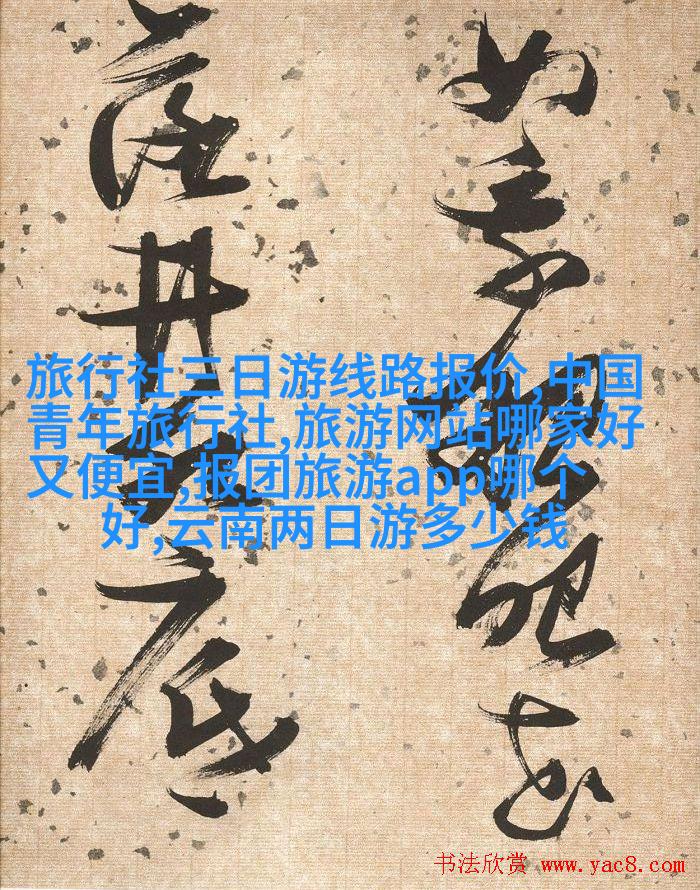 似乘船眼花
落井水底
旅行社三日游线路报价,中国
青年旅行社,旅游网站哪家好
又便宜,报团旅游app哪个
好,云南两日游多少钱
书法欣赏 www.yac8.com